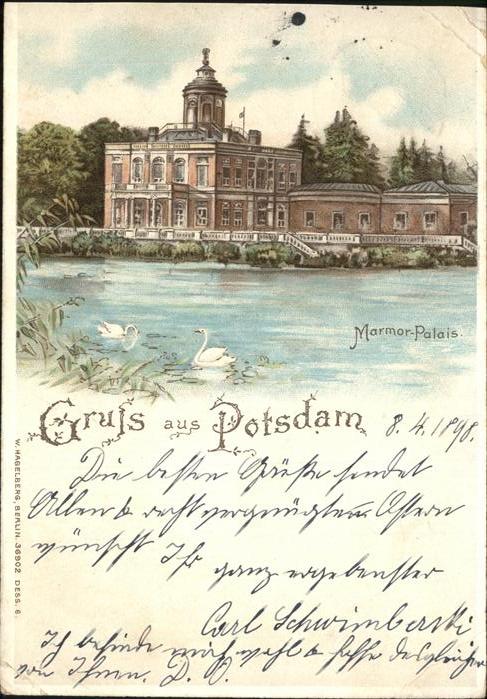 Marmor-Palais.
Gruſs aus Potsdam 8.4.1898.
Die besten Grüße sendet
Allen & recht vergnügtes Ostern
wünscht Ihr
ganz ergebenster
Carl Schwimberski
Ich befinde mich wohl & hoffe desgleichen
von Ihnen. D. O.
W. HAGELBERG, BERLIN. 36902 DESS. 6.